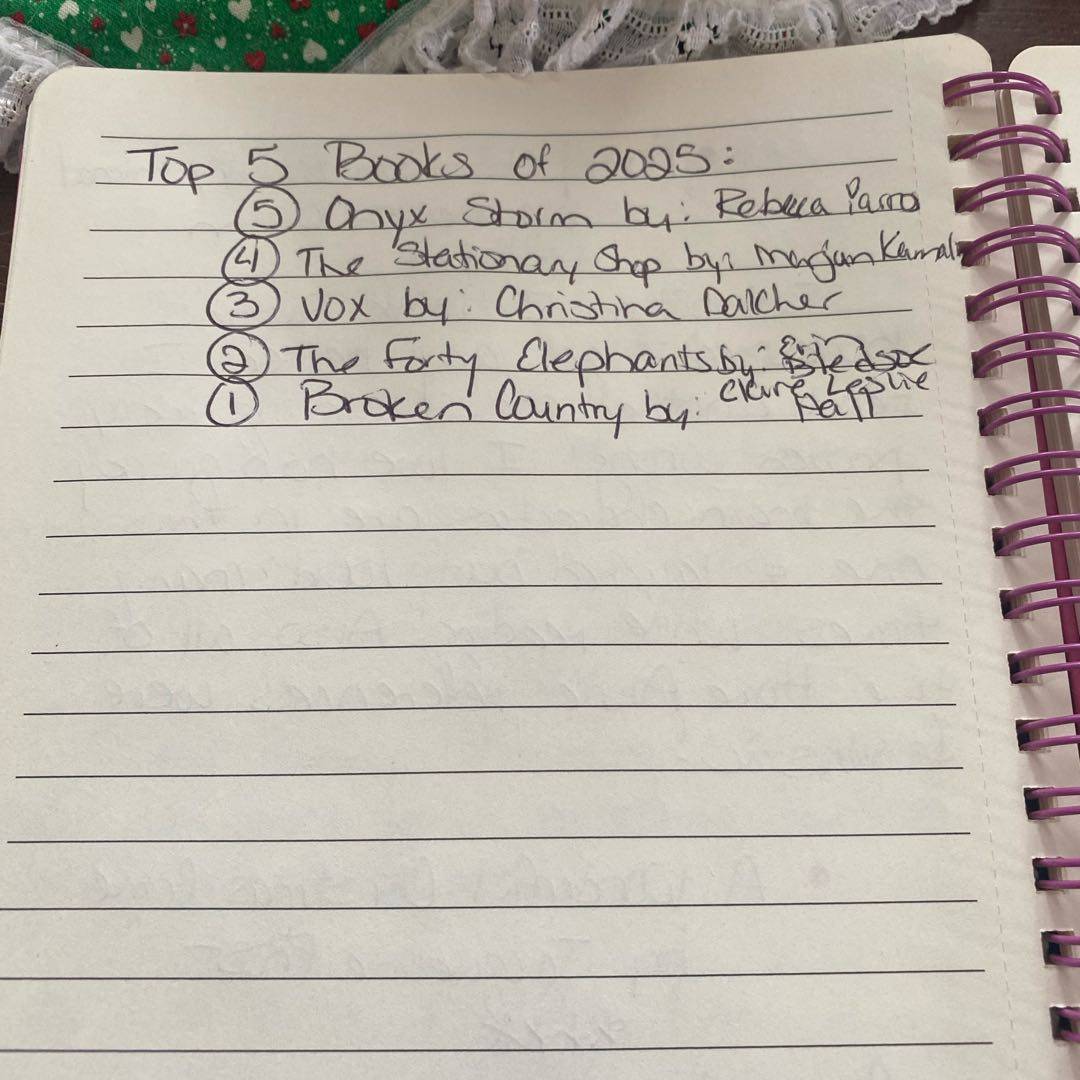 Top 5 Books of 2025:
5 Onyx Storm by: Rebecca Yarros
4 The Stationary Shop by: Marjan Kamali
3 Vox by: Christina Dalcher
2 The Forty Elephants by: Erin Bledsoe
1 Broken Country by: Claire Leslie
Hall